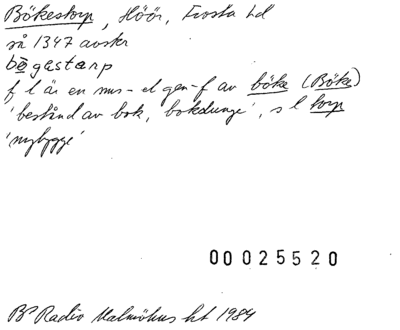 Bökestorp, Höör, Frosta hd
så 1347 avskr
bøgastarp
f l är en sms-el gen-f av böke (Böke)
'bestånd av bok, bokdunge', s l torp
'nybygge'
00025520
BP Radio Malmöhus ht 1984